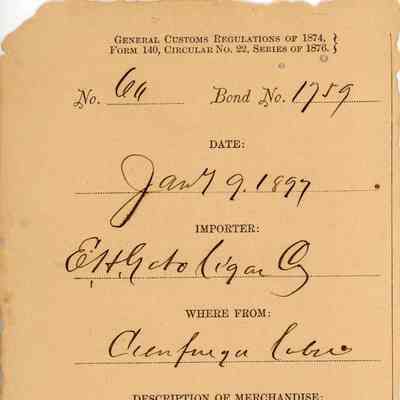 GENERAL CUSTOMS REGULATIONS OF 1874,
FORM 140, CIRCULAR NO. 22, SERIES OF 1876.
No. Bond No. 1759
DATE:
Jany 9. 1897
IMPORTER:
E.H. Gato Cigar Co
WHERE FROM:
Cienfuegos Cuba
DESCRIPTION OF MERCHANDISE: